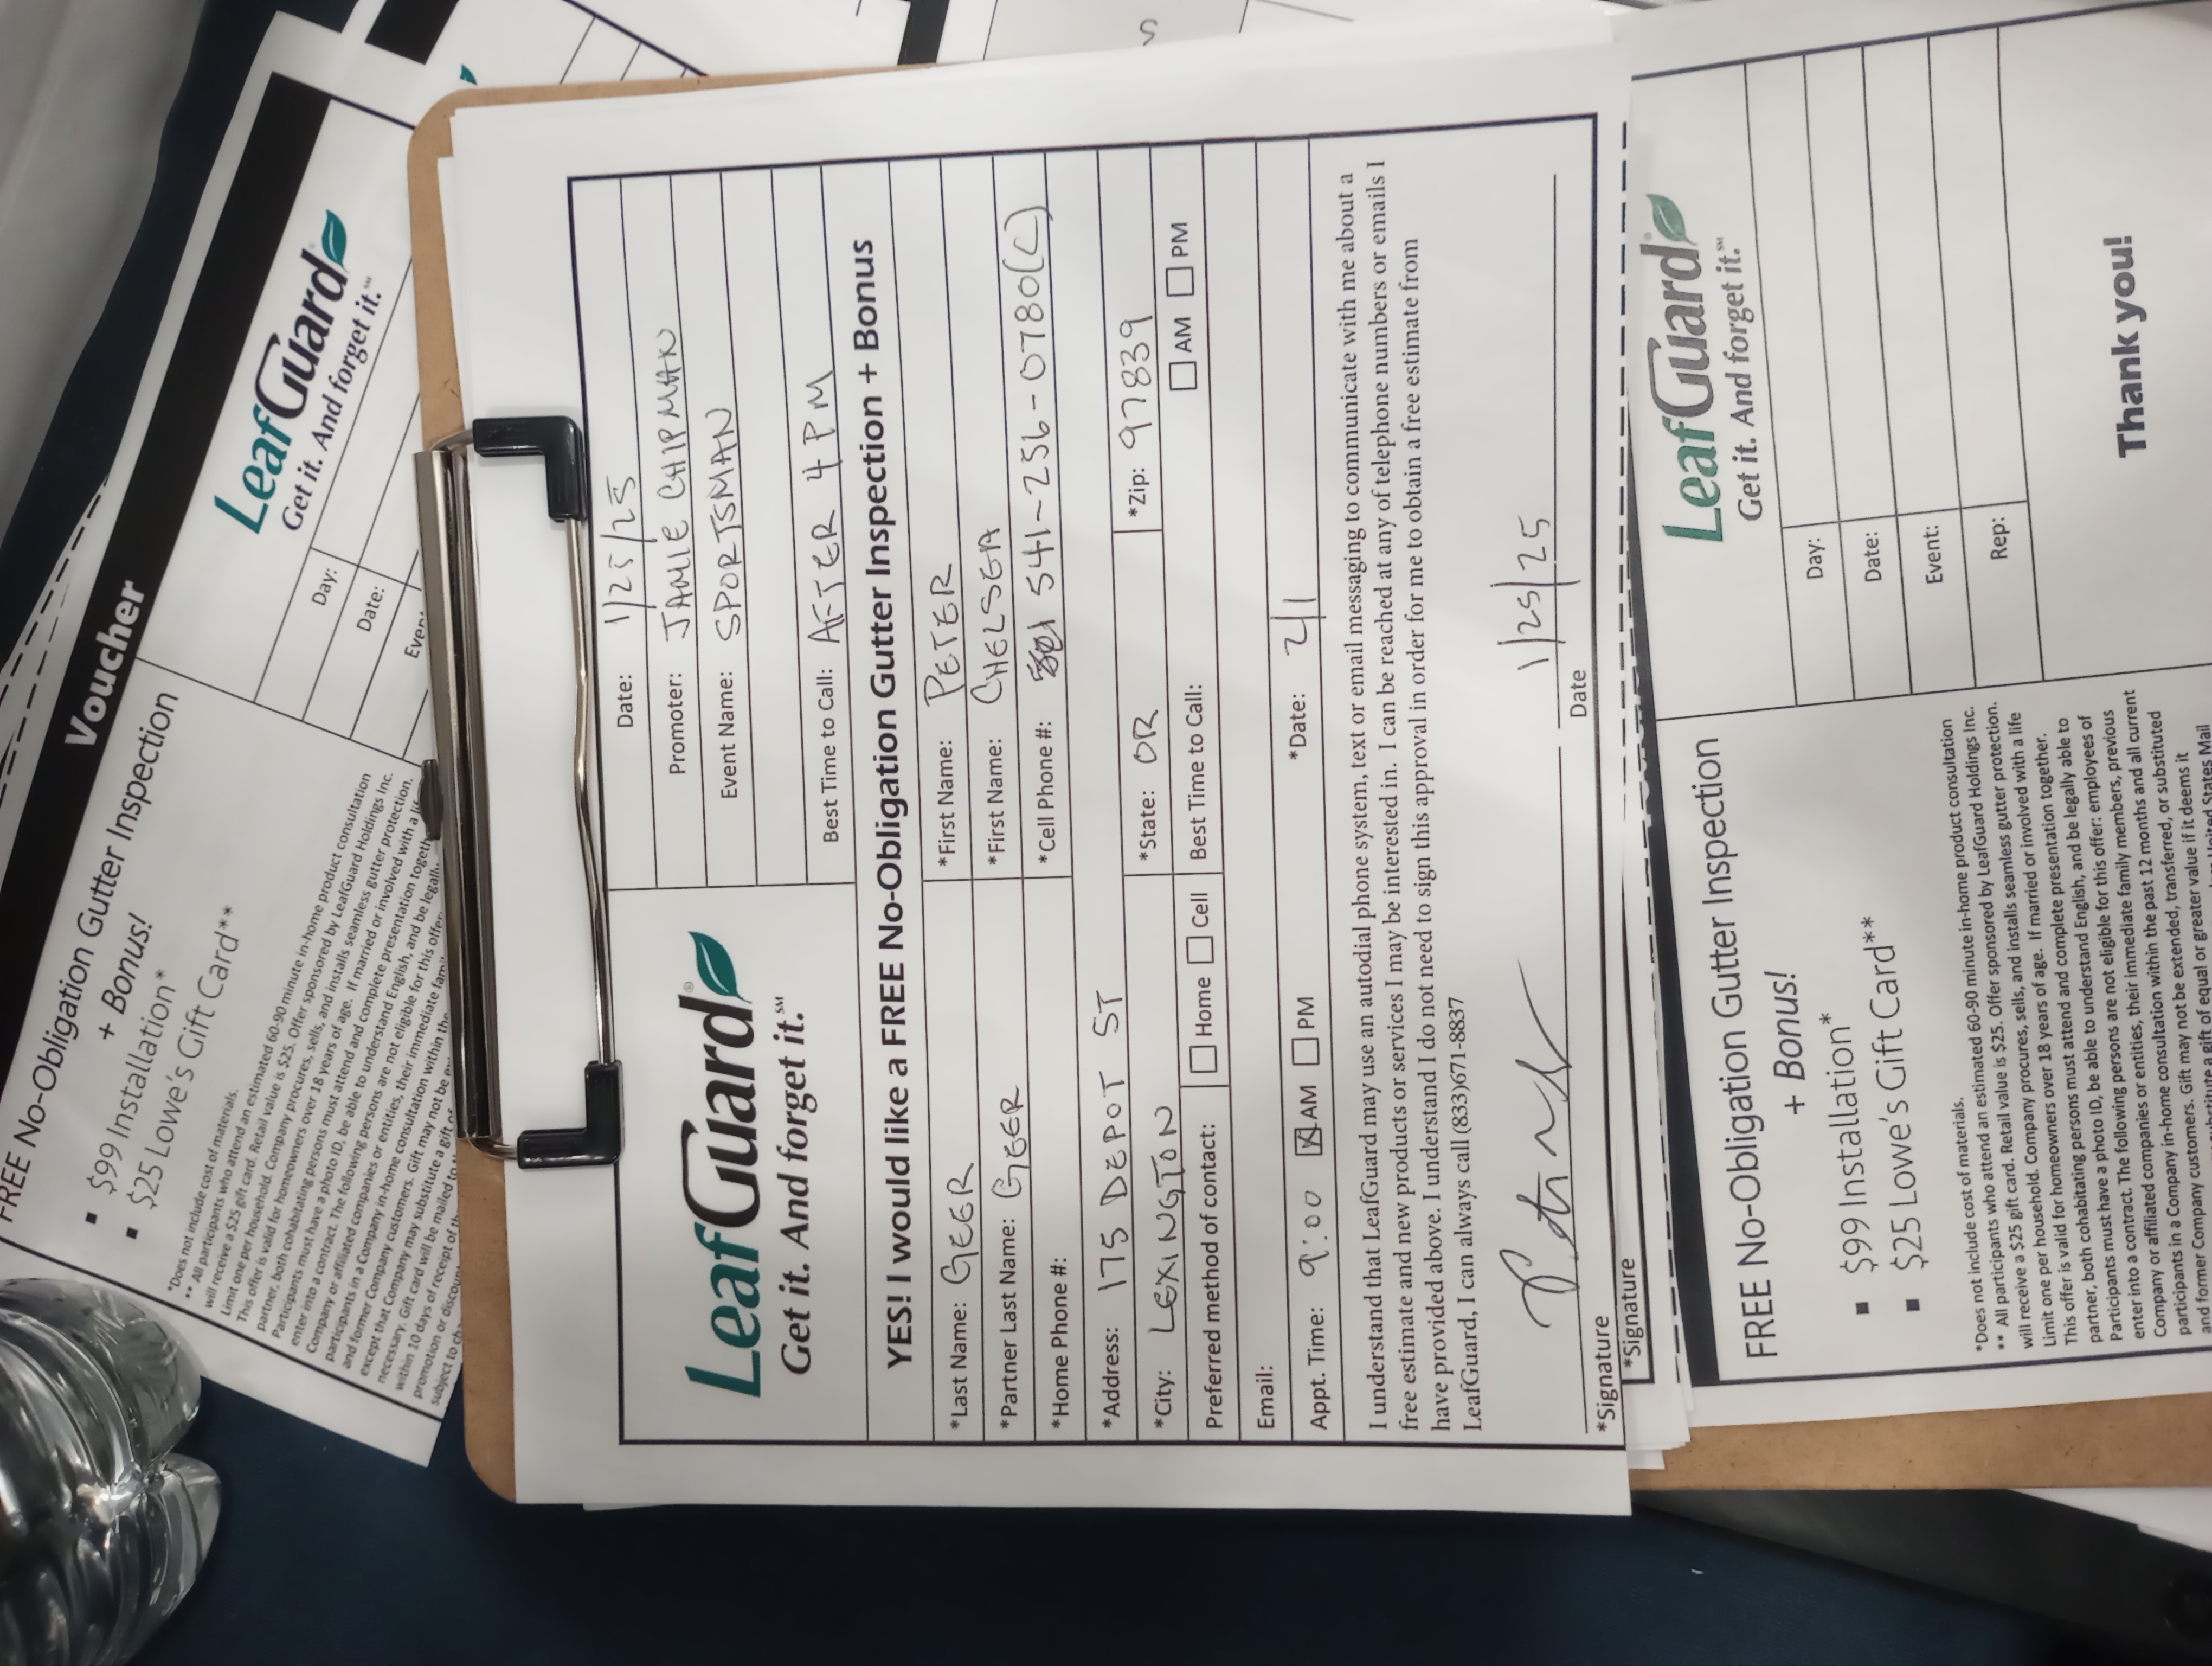 Voucher
FREE No-Obligation Gutter Inspection
+ Bonus!
▪ $99 Installation*
▪ $25 Lowe's Gift Card**
*Does not include cost of materials.
** All participants who attend an estimated 60-90 minute in-home product consultation
will receive a $25 gift card. Retail value is $25. Offer sponsored by LeafGuard Holdings Inc.
Limit one per household. Company procures, sells, and installs seamless gutter protection.
This offer is valid for homeowners over 18 years of age. If married or involved with a
partner, both cohabitating persons must attend and complete presentation
Participants must have a photo ID, be able to understand English, and be legally
enter into a contract. The following persons are not eligible for this
Company or affiliated companies or entities, their immediate
participants in a Company in-home consultation within the
and former Company customers. Gift may not be
except that Company may substitute a gift of
necessary. Gift card will be mailed to
within 10 days of receipt of
promotion or
subject to
LeafGuard
Get it. And forget it.℠
Day:
Date:
LeafGuard®
Get it. And forget it.℠
Date: 1/25/25
Promoter: JAMIE CHIPMAN
Event Name: SPORTSMAN
Best Time to Call: AFTER 4 PM
YES! I would like a FREE No-Obligation Gutter Inspection + Bonus
*Last Name: GEER *First Name: PETER
*Partner Last Name: GEER *First Name: CHELSEA
*Home Phone #: *Cell Phone #: 541-256-0780(C)
*Address: 175 DEPOT ST
*City: LEXINGTON *State: OR *Zip: 97839
Preferred method of contact: Home Cell Best Time to Call: AM PM
Email:
Appt. Time: 9:00 AM PM *Date: 2/1
I understand that LeafGuard may use an autodial phone system, text or email messaging to communicate with me about a
free estimate and new products or services I may be interested in. I can be reached at any of telephone numbers or emails I
have provided above. I understand I do not need to sign this approval in order for me to obtain a free estimate from
LeafGuard, I can always call (833)671-8837
1/25/25
*Signature Date
*Signature
FREE No-Obligation Gutter Inspection
+ Bonus!
▪ $99 Installation*
▪ $25 Lowe's Gift Card**
*Does not include cost of materials.
** All participants who attend an estimated 60-90 minute in-home product consultation
will receive a $25 gift card. Retail value is $25. Offer sponsored by LeafGuard Holdings Inc.
Limit one per household. Company procures, sells, and installs seamless gutter protection.
This offer is valid for homeowners over 18 years of age. If married or involved with a life
partner, both cohabitating persons must attend and complete presentation together.
Participants must have a photo ID, be able to understand English, and be legally able to
enter into a contract. The following persons are not eligible for this offer: employees of
Company or affiliated companies or entities, their immediate family members, previous
participants in a Company in-home consultation within the past 12 months and all current
and former Company customers. Gift may not be extended, transferred, or substituted
substitute a gift of equal or greater value if it deems it
United States Mail
LeafGuard
Get it. And forget it.℠
Day:
Date:
Event:
Rep:
Thank you!